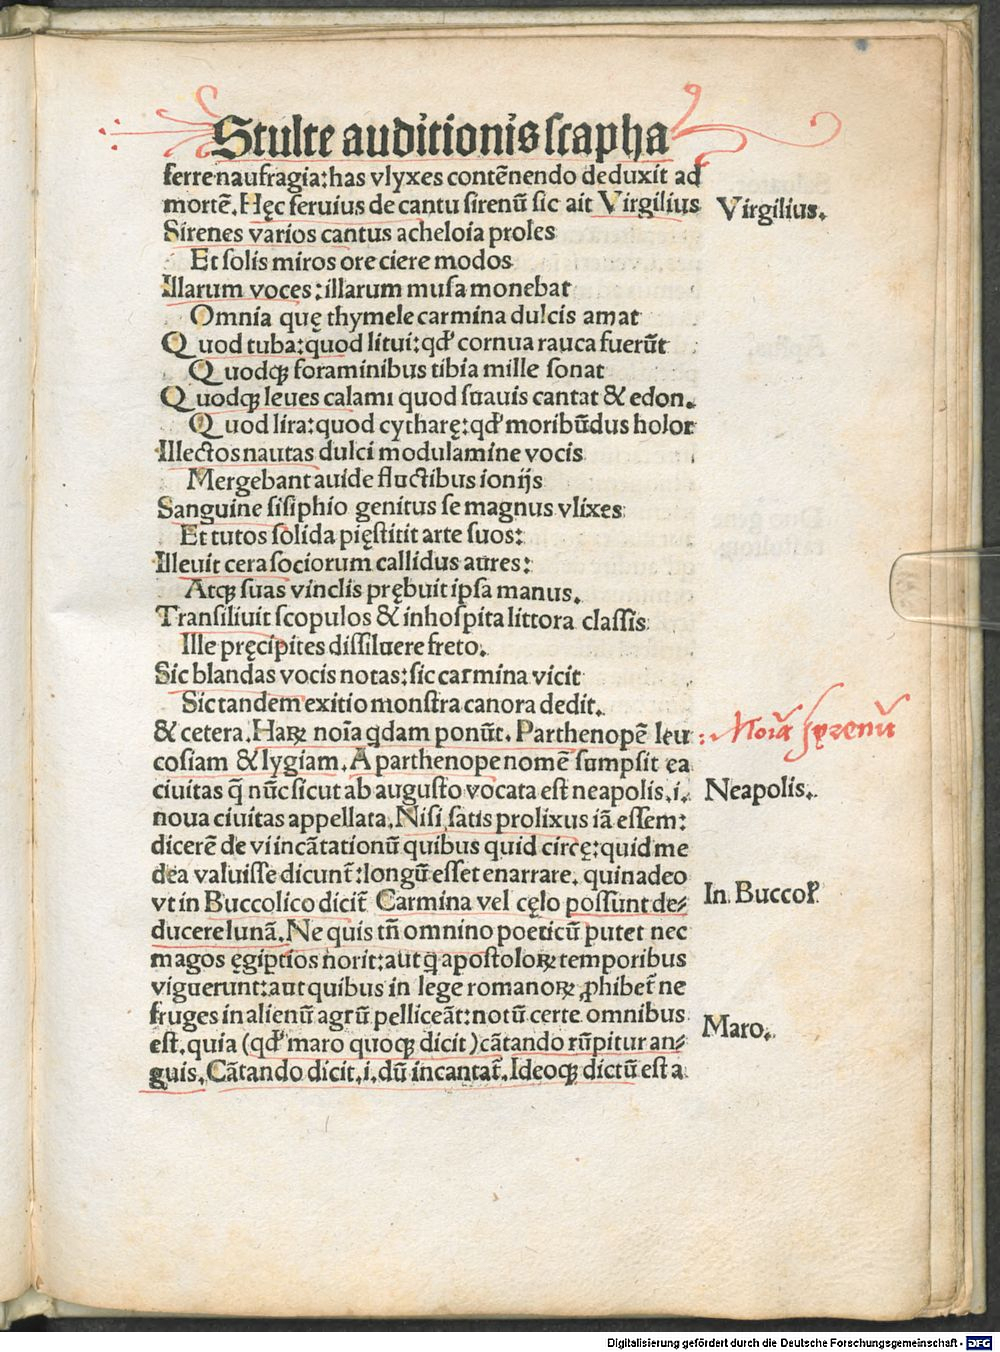 Stulte auditionis scapha
ferre naufragia:has vlyxes contẽnendo deduxit ad
mortẽ.Hęc seruius de cantu sirenũ sic ait Virgilius
Virgilius.
Sirenes varios cantus acheloia proles
Et solis miros ore ciere modos
Illarum voces:illarum musa monebat
Omnia quę thymele carmina dulcis amat
Quod tuba:quod litui:qđ cornua rauca fuerũt
Quodqꝫ foraminibus tibia mille sonat
Quodqꝫ leues calami quod suauis cantat & edon.
Quod lira:quod cytharę:qđ moribũdus holor
Illectos nautas dulci modulamine vocis
Mergebant auide fluctibus ionijs
Sanguine sisiphio genitus se magnus vlixes
Et tutos solida pięstitit arte suos:
Illeuit cera sociorum callidus aures:
Atqꝫ suas vinclis prębuit ipsa manus.
Transiliuit scopulos & inhospita littora classis
Ille pręcipites dissiluere freto.
Sic blandas vocis notas:sic carmina vicit
Sic tandem exitio monstra canora dedit.
& cetera.Haꝝ noĩa qdam ponũt.Parthenopẽ leu
Noĩa syrenũ
cosiam & lygiam.A parthenope nomẽ sumpsit ea
ciuitas q̃ nũc sicut ab augusto vocata est neapolis.i.
Neapolis.
noua ciuitas appellata.Nisi satis prolixus iã essem:
dicerẽ de vi incãtationũ quibus quid circę:quid me
dea valuisse dicunt̃:longũ esset enarrare. quinadeo
vt in Buccolico dicit̃ Carmina vel cęlo possunt de⸗
In Buccol̕
ducere lunã.Ne quis tñ omnino poeticũ putet nec
magos ęgiptios norit:aut q̃ apostoloꝝ temporibus
viguerunt:aut quibus in lege romanoꝝ ꝓhibet̃ ne
fruges in alienũ agrũ pelliceãt:notũ certe omnibus
est.quia (qđ maro quoqꝫ dicit )cãtando rũpitur an⸗
Maro.
guis.Cãtando dicit.i.dũ incantat̃.Ideoqꝫ dictũ est a
Digitalisierung gefördert durch die Deutsche Forschungsgemeinschaft - DFG